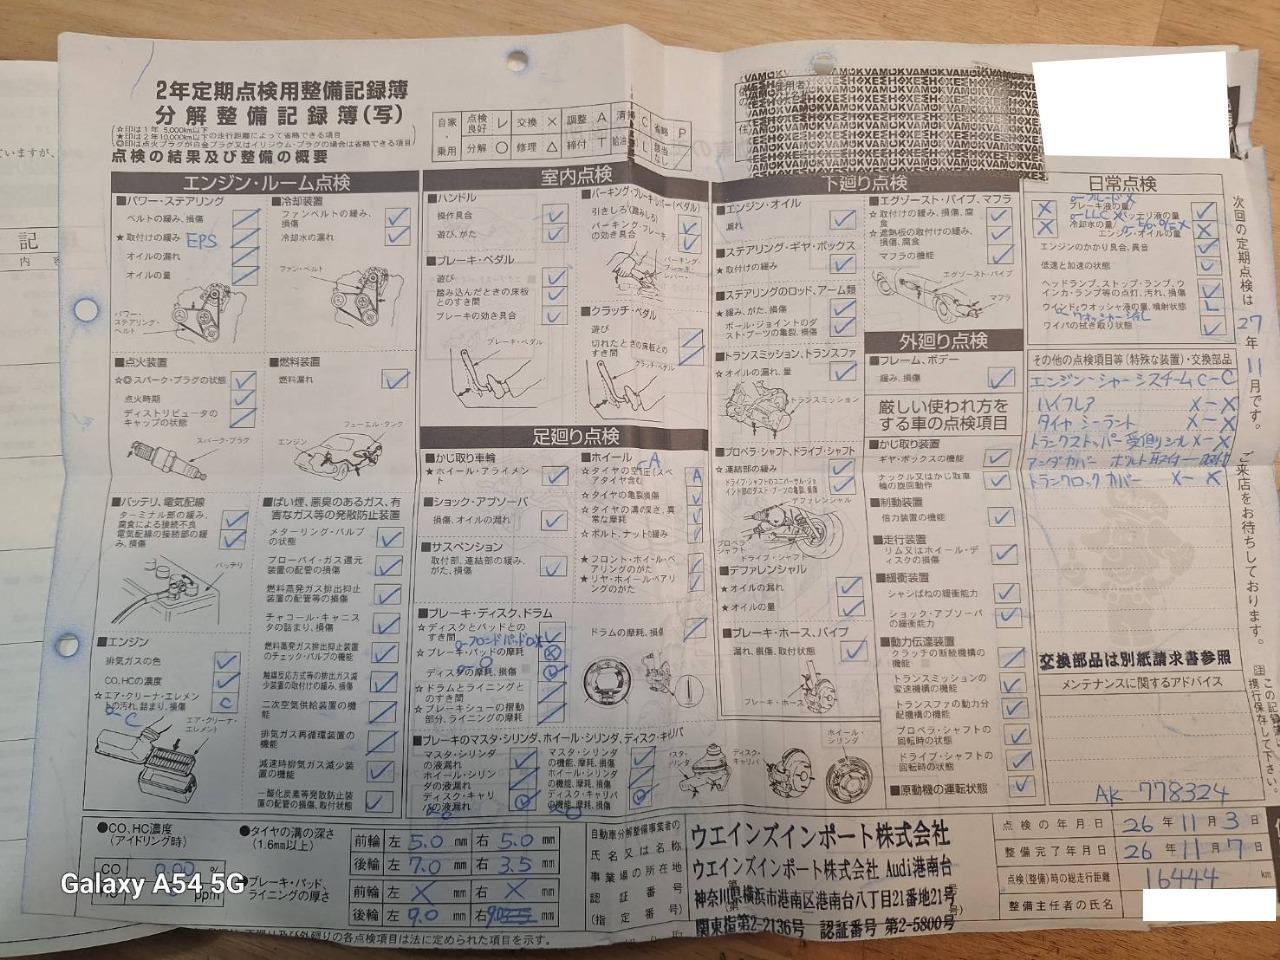 2年定期点検用整備記録簿
分解整備記録簿(写)
☆印は1年 5,000km以下
★印は2年 10,000km以下の走行距離によって省略できる項目
◎印は点火プラグが白金プラグ又はイリジウム・プラグの場合は省略できる項目
点検の結果及び整備の概要
自家・乗用
点検良好 レ 交換 × 調整 A 清掃 C 省略 P
分解 ○ 修理 △ 締付 T 給油 L 該当なし
エンジン・ルーム点検
■パワー・ステアリング
ベルトの緩み、損傷
★取付けの緩み EPS
オイルの漏れ
オイルの量
パワー・ステアリング・ベルト
■冷却装置
ファンベルトの緩み、損傷
冷却水の漏れ
ファン・ベルト
■点火装置
☆◎スパーク・プラグの状態
点火時期
ディストリビュータのキャップの状態
スパーク・プラグ
■燃料装置
燃料漏れ
フューエル・タンク
エンジン
■バッテリ、電気配線
ターミナル部の緩み、腐食による接続不良
電気配線の接続部の緩み、損傷
バッテリ
■エンジン
排気ガスの色
CO、HCの濃度
☆エア・クリーナ・エレメントの汚れ、詰まり、損傷 C
エア・クリーナ・エレメント
■ばい煙、悪臭のあるガス、有害なガス等の発散防止装置
メターリング・バルブの状態
ブローバイ・ガス還元装置の配管の損傷
燃料蒸発ガス排出抑止装置の配管等の損傷
チャコール・キャニスタの詰まり、損傷
燃料蒸発ガス排出抑止装置のチェック・バルブの機能
触媒反応方式等の排出ガス減少装置の取付けの緩み、損傷
二次空気供給装置の機能
排気ガス再循環装置の機能
減速時排気ガス減少装置の機能
一酸化炭素等発散防止装置の配管の損傷、取付状態
室内点検
■ハンドル
操作具合
遊び、がた
■ブレーキ・ペダル
遊び
踏み込んだときの床板とのすき間
ブレーキの効き具合
ブレーキ・ペダル
■パーキング・ブレーキ・レバー(ペダル)
引きしろ(踏みしろ)
パーキング・ブレーキの効き具合
パーキング・ブレーキ・レバー
■クラッチ・ペダル
遊び
切れたときの床板とのすき間
クラッチ・ペダル
足廻り点検
■かじ取り車輪
★ホイール・アライメント
■ショック・アブソーバ
損傷、オイルの漏れ
■サスペンション
取付部、連結部の緩み、がた、損傷
■ホイール
☆タイヤの空気圧(スペアタイヤ含む) A
☆タイヤの亀裂損傷
☆タイヤの溝の深さ、異常な摩耗
☆ボルト、ナットの緩み
★フロント・ホイール・ベアリングのがた
★リヤ・ホイール・ベアリングのがた
■ブレーキ・ディスク、ドラム
☆ディスクとパッドとのすき間
☆ブレーキ・パッドの摩耗
ディスクの摩耗、損傷
☆ドラムとライニングとのすき間
☆ブレーキシューの摺動部分、ライニングの摩耗
ドラムの摩耗、損傷
■ブレーキのマスタ・シリンダ、ホイール・シリンダ、ディスク・キャリパ
マスタ・シリンダの液漏れ
ホイール・シリンダの液漏れ
ディスク・キャリパの液漏れ
マスタ・シリンダの機能、摩耗、損傷
ホイール・シリンダの機能、摩耗、損傷
ディスク・キャリパの機能、摩耗、損傷
マスタ・シリンダ
ディスク・キャリパ
ホイール・シリンダ
下廻り点検
■エンジン・オイル
漏れ
■ステアリング・ギヤ・ボックス
★取付けの緩み
■ステアリングのロッド、アーム類
★緩み、がた、損傷
ボール・ジョイントのダスト・ブーツの亀裂、損傷
■トランスミッション、トランスファ
☆オイルの漏れ、量
トランスミッション
■プロペラ・シャフト、ドライブ・シャフト
★連結部の緩み
ドライブ・シャフトのユニバーサル・ジョイント部のダスト・ブーツの亀裂、損傷
デファレンシャル
プロペラ・シャフト
ドライブ・シャフト
■デファレンシャル
★オイルの漏れ
★オイルの量
■ブレーキ・ホース、パイプ
漏れ、損傷、取付状態
ブレーキ・ホース
■エグゾースト・パイプ、マフラ
☆取付けの緩み、損傷、腐食
☆遮熱板の取付けの緩み、損傷、腐食
マフラの機能
エグゾースト・パイプ
マフラ
外廻り点検
■フレーム、ボデー
緩み、損傷
厳しい使われ方をする車の点検項目
■かじ取り装置
ギヤ・ボックスの機能
ナックル又はかじ取車輪の旋回動作
■制動装置
倍力装置の機能
■走行装置
リム又はホイール・ディスクの損傷
■緩衝装置
シャシばねの緩衝能力
ショック・アブソーバの緩衝能力
■動力伝達装置
クラッチの断続機構の機能
トランスミッションの変速機構の機能
トランスファの動力分配機構の機能
プロペラ・シャフトの回転時の状態
ドライブ・シャフトの回転時の状態
■原動機の運転状態
日常点検
ブレーキ液の量
バッテリ液の量
冷却水の量
エンジン・オイルの量
エンジンのかかり具合、異音
低速と加速の状態
ヘッドランプ、ストップ・ランプ、ウインカ・ランプ等の点灯、汚れ、損傷
ウインド・ウォッシャ液の量、噴射状態 L
ワイパの拭き取り状態
その他の点検項目等(特殊な装置)・交換部品
エンジン・シャーシスチーム C-C
ハイフレア X-X
タイヤシーラント X-X
トランクストッパー 受側シル X-X
アンダカバー ボルト取付一取付
トランクロックカバー X-X
交換部品は別紙請求書参照
メンテナンスに関するアドバイス
AK 778324
次回の定期点検は27年11月です。ご来店をお待ちしております。
●CO、HC濃度
(アイドリング時)
CO 0.00 %
ppm
●タイヤの溝の深さ
(1.6mm以上)
前輪 左 5.0 mm 右 5.0 mm
後輪 左 7.0 mm 右 3.5 mm
●ブレーキ・パッド、ライニングの厚さ
前輪 左 X mm 右 X mm
後輪 左 9.0 mm 右 mm
自動車分解整備事業者の氏名又は名称
事業場の所在地
認証番号
(指定番号)
ウエインズインポート株式会社
ウエインズインポート株式会社 Audi港南台
神奈川県横浜市港南区港南台八丁目21番地21号
関東指第2-2136号 認証番号 第2-5800号
点検の年月日 26年11月3日
整備完了年月日 26年11月7日
点検(整備)時の総走行距離 16444 km
整備主任者の氏名
外廻りの各点検項目は法に定められた項目を示す。
Galaxy A54 5G